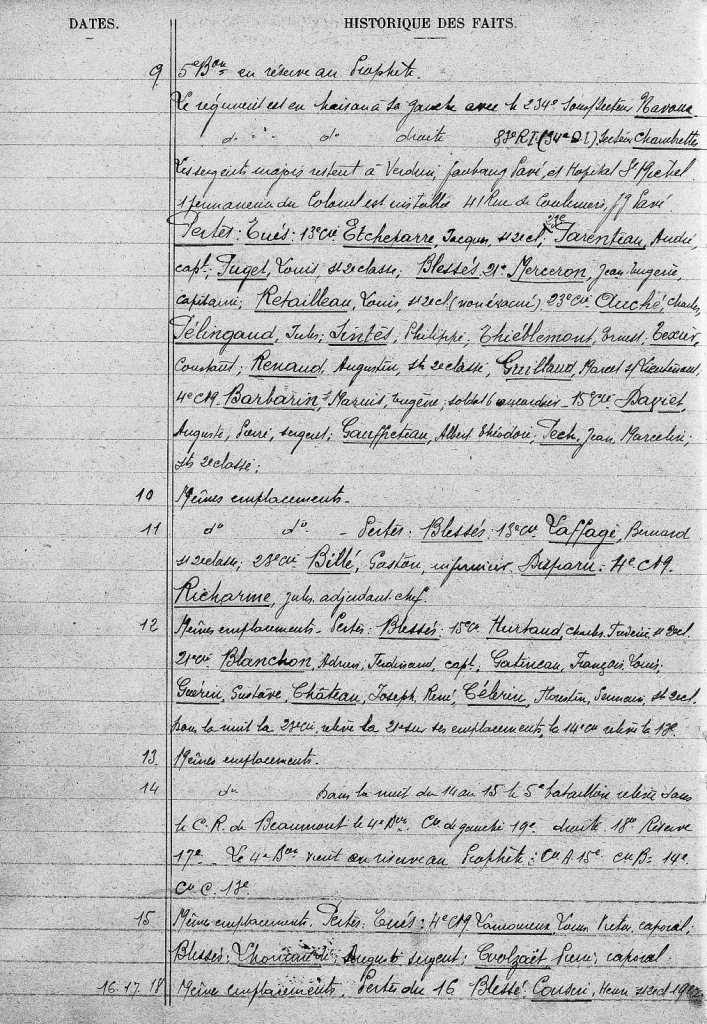 DATES. HISTORIQUE DES FAITS.
9 5e Bon en réserve au Prophète.
Le régiment est en liaison à sa gauche avec le 234e sous/secteur
do do droite 83e R.I. (34e D.I.) Secteur Chambrettes
Les sergents majors restent à Verdun, faubourg Pavé, et Hopital St Michel
permanence du Colonel est installée 41 Rue de Coulmiers, Fg Pavé
Pertes: Tués: 13e Cie Etcheparre, Jacques, st 2e cl; 21e Parenteau, André,
capl; Puget, Louis, st 2e classe; Blessés: 21e Merceron, Jean Eugène,
capitaine; Retailleau, Louis, st 2e cl (non évacué) 23e Cie Auché, Charles,
Pélingaud, Jules; Sintès, Philippe; Thiéblemont, Ernest,
Constant; Renaud, Augustin, sts 2e classe, Guillaud, Marcel s/Lieutenant.
4e CM. Barbarin, Eugène, soldat 15e Cie
Auguste, Pierre, sergent; Gauffreteau, Albert Théodore; Pech, Jean, Marcelin;
sts 2e classe;
10 Mêmes emplacements.
11 do do - Pertes: Blessés: 13e Cie Laffage, Bernard
st 2e classe; 23e Cie Billé, Gaston, infirmier. Disparu: 4e CM.
Richarme, Jules, adjudant chef.
12 Mêmes emplacements. Pertes: Blessés: 15e Cie Hurtaud, Charles, Frédéric, st 2e cl.
21e Cie Blanchon, Adrien, Ferdinand, capl, Gatineau, François, Louis,
Guérin, Gustave, Château, Joseph, René, Célerin, Germain, st 2e cl.
Dans la nuit la 23e Cie relève la 21e sur ses emplacements, la 14e Cie relève la 13e.
13 Mêmes emplacements.
14 do Dans la nuit du 14 au 15 le 5e bataillon relève dans
le C.R. de Beaumont le 4e Bon. Cie de gauche 19e droite 18e Réserve
17e - Le 4e Bon vient en réserve au Prophète: Cie A 15e Cie B = 14e
Cie C. 13e
15 Mêmes emplacements. Pertes: Tués: 4e CM. Victor, caporal;
Blessés: Auguste sergent; Pierre, caporal
16. 17. 18 Mêmes emplacements. Pertes du 16 Blessé: Henri